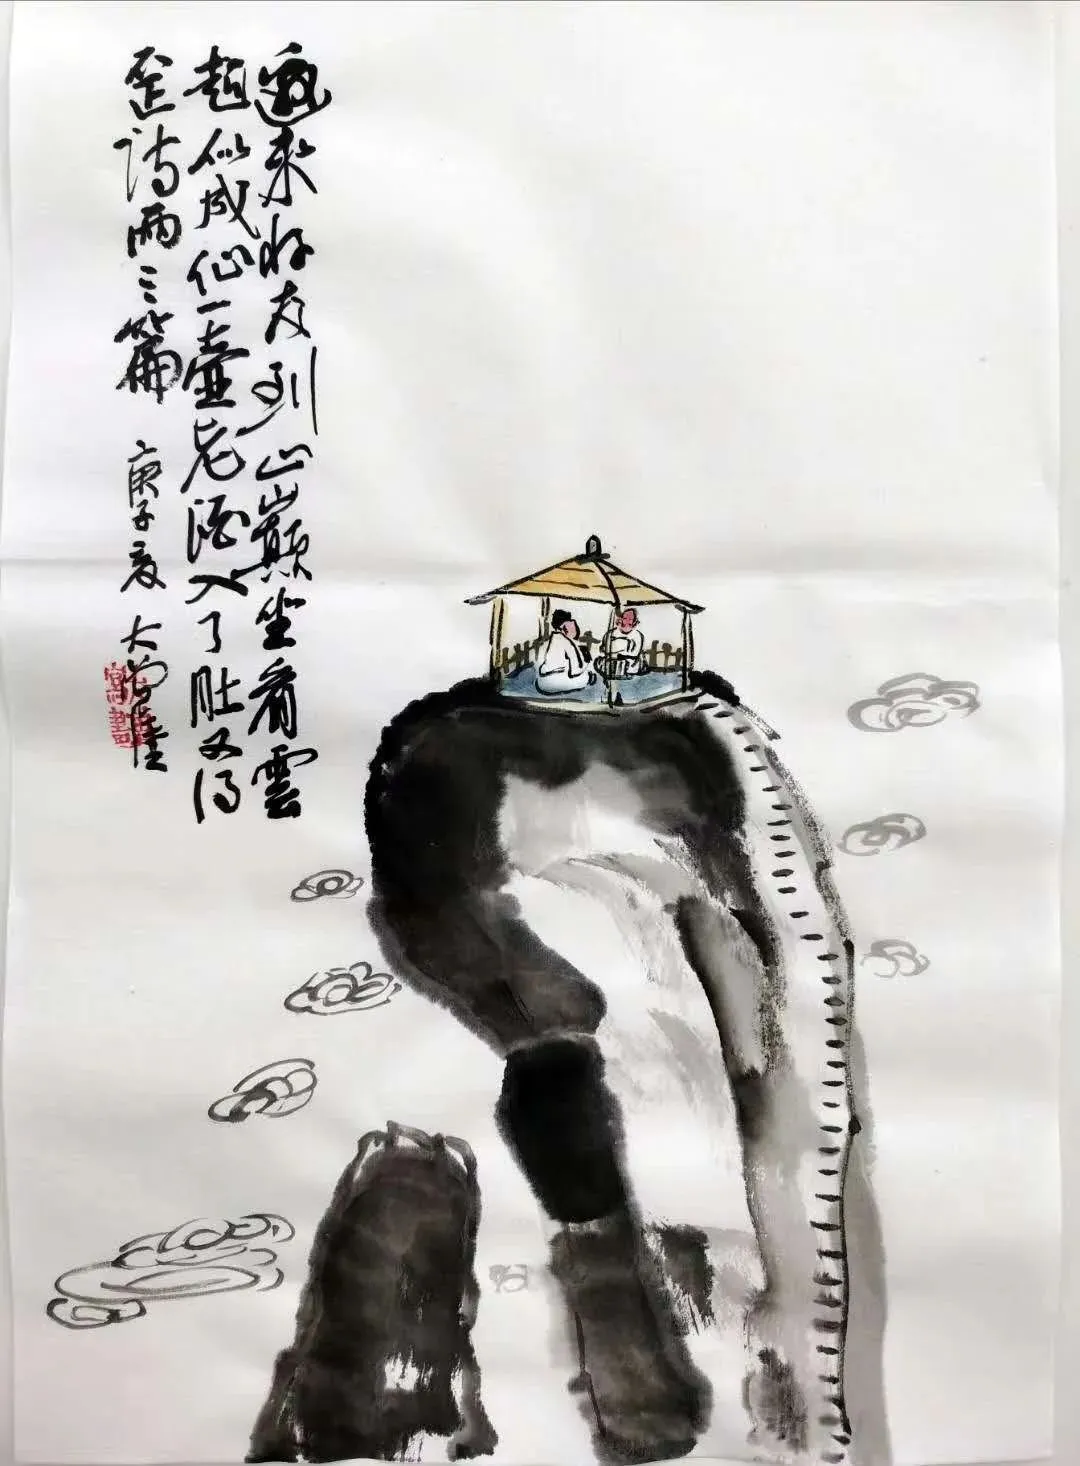 邀来好友到山巅坐看雲
起似成仙一壶老酒入了肚又得
歪诗两三篇 庚子夏 大